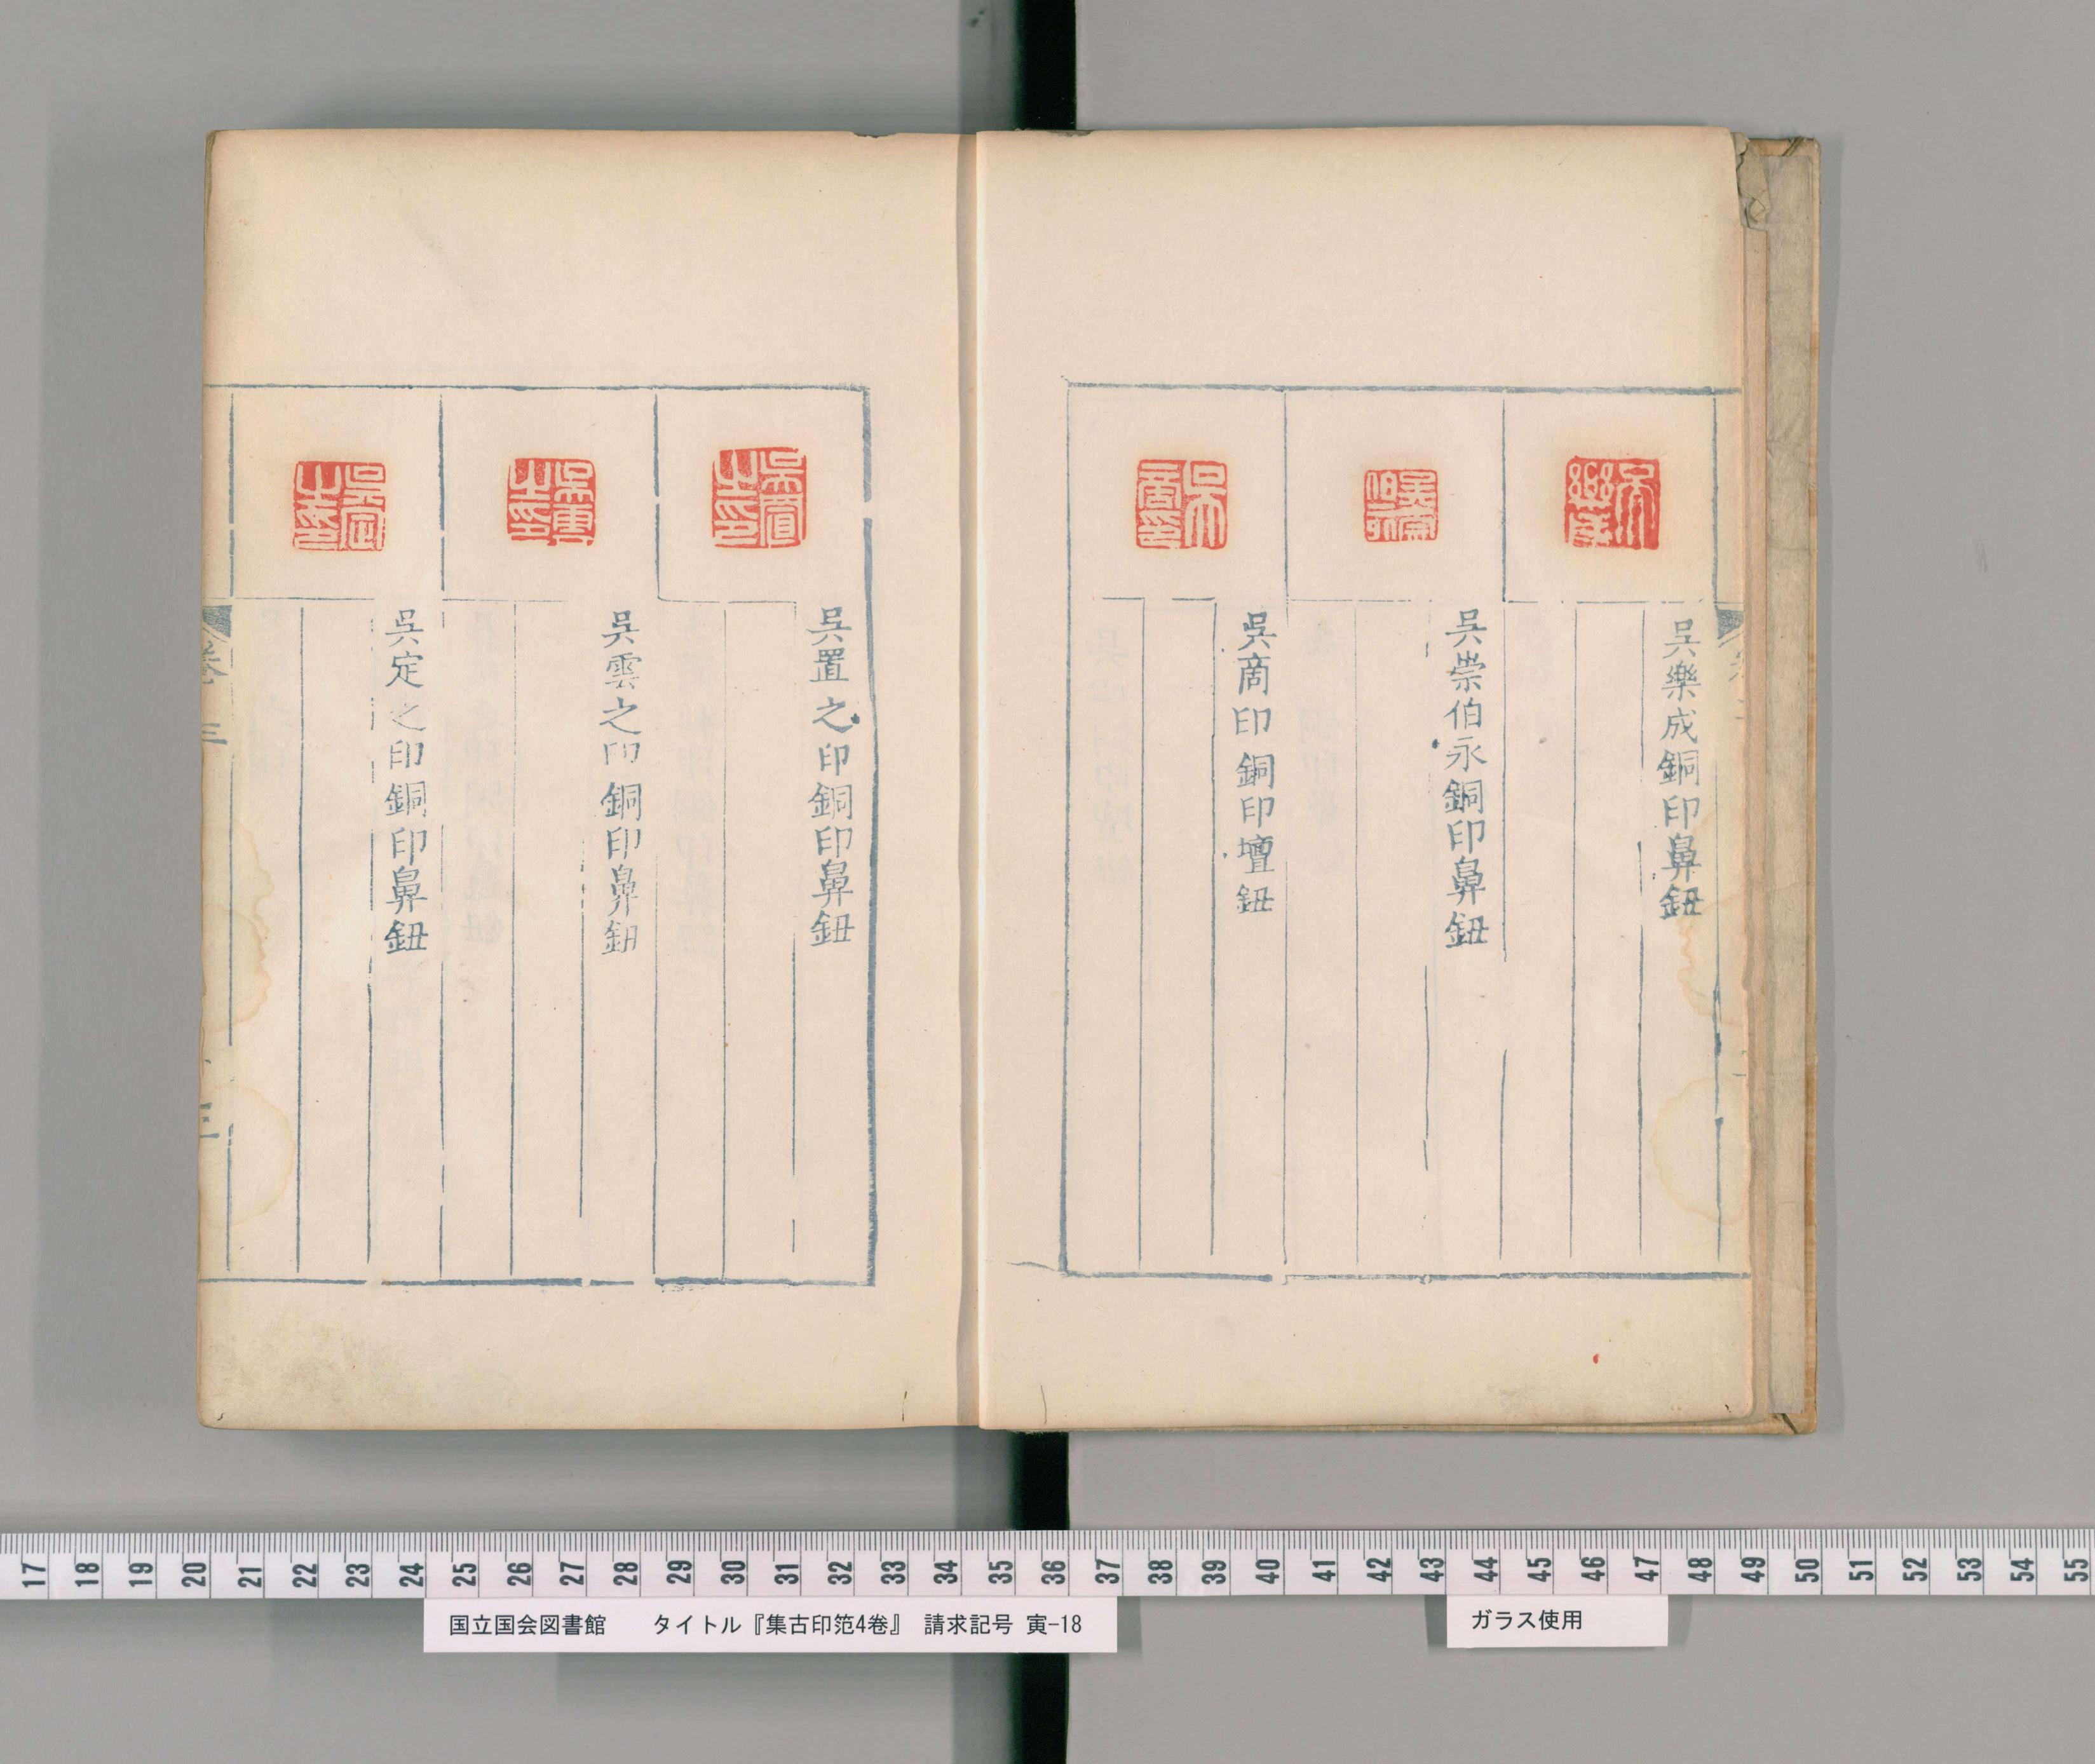 吳樂成銅印鼻鈕
吳崇伯永銅印鼻鈕
吳商印銅印壇鈕
吳置之印銅印鼻鈕
吳雲之印銅印鼻鈕
吳定之印銅印鼻鈕
卷三
三
17 18 19 20 21 22 23 24 25 26 27 28 29 30 31 32 33 34 35 36 37 38 39 40 41 42 43 44 45 46 47 48 49 50 51 52 53 54 55
国立国会図書館 タイトル『集古印笵4巻』 請求記号 寅-18
ガラス使用